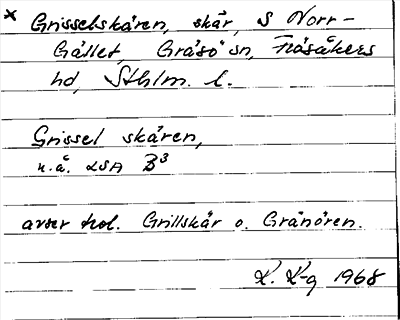 × Grisselskären, skär, S Norr-
Gället, Gräsö sn, Frösåkers
hd, Sthlm. l.
Grissel skären,
n.å. LSA B³
avser trol. Grillskär o. Granören.
K. K-g 1968